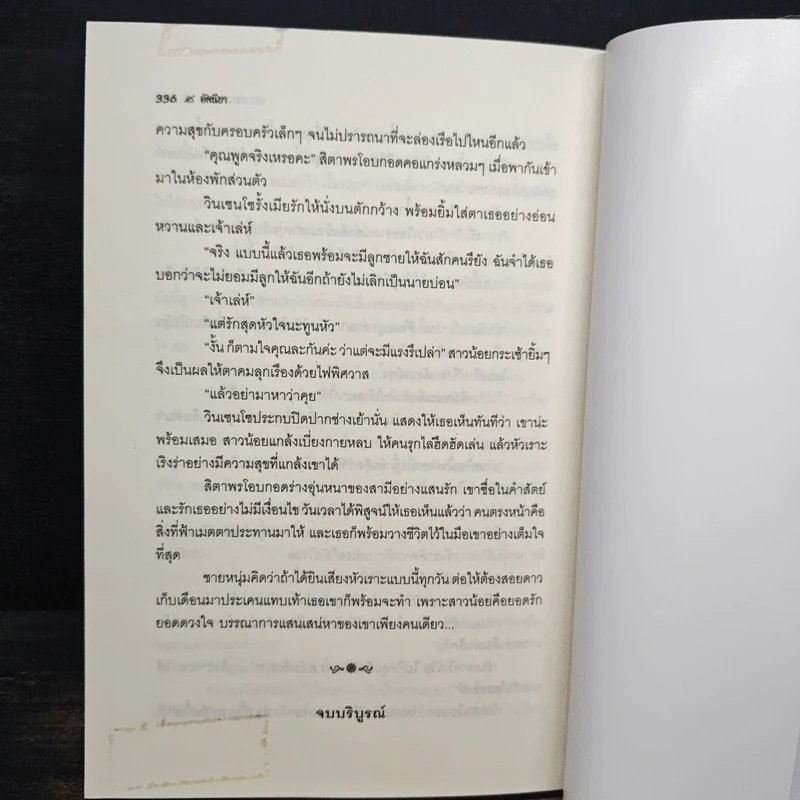 336 อัคนียา
ความสุขกับครอบครัวเล็กๆ จนไม่ปรารถนาที่จะล่องเรือไปไหนอีกแล้ว
“คุณพูดจริงเหรอคะ” สิตาพรโอบกอดคอแกร่งหลวมๆ เมื่อพากันเข้า
มาในห้องพักส่วนตัว
วินเซนโซรั้งเมียรักให้นั่งบนตักกว้าง พร้อมยิ้มใส่ตาเธออย่างอ่อน
หวานและเจ้าเล่ห์
“จริง แบบนี้แล้วเธอพร้อมจะมีลูกชายให้ฉันสักคนรึยัง ฉันจำได้เธอ
บอกว่าจะไม่ยอมมีลูกให้ฉันอีกถ้ายังไม่เลิกเป็นนายบ่อน”
“เจ้าเล่ห์”
“แต่รักสุดหัวใจนะทูนหัว”
“งั้น ก็ตามใจคุณละกันค่ะ ว่าแต่จะมีแรงรึเปล่า” สาวน้อยกระเซ้ายิ้มๆ
จึงเป็นผลให้ตาคมลุกเรืองด้วยไฟพิศวาส
“แล้วอย่ามาหาว่าคุย”
วินเซนโซประกบปิดปากช่างเย้านั่น แสดงให้เธอเห็นทันทีว่า เขาน่ะ
พร้อมเสมอ สาวน้อยแกล้งเบี่ยงกายหลบ ให้คนรุกไล่ฮึดฮัดเล่น แล้วหัวเราะ
เริงร่าอย่างมีความสุขที่แกล้งเขาได้
สิตาพรโอบกอดร่างอุ่นหนาของสามีอย่างแสนรัก เขาซื่อในคำสัตย์
และรักเธออย่างไม่มีเงื่อนไข วันเวลาได้พิสูจน์ให้เธอเห็นแล้วว่า คนตรงหน้าคือ
สิ่งที่ฟ้าเมตตาประทานมาให้ และเธอก็พร้อมวางชีวิตไว้ในมือเขาอย่างเต็มใจ
ที่สุด
ชายหนุ่มคิดว่าถ้าได้ยินเสียงหัวเราะแบบนี้ทุกวัน ต่อให้ต้องสอยดาว
เก็บเดือนมาประเคนแทบเท้าเธอเขาก็พร้อมจะทำ เพราะสาวน้อยคือยอดรัก
ยอดดวงใจ บรรณาการแสนเสน่หาของเขาเพียงคนเดียว...
จบบริบูรณ์